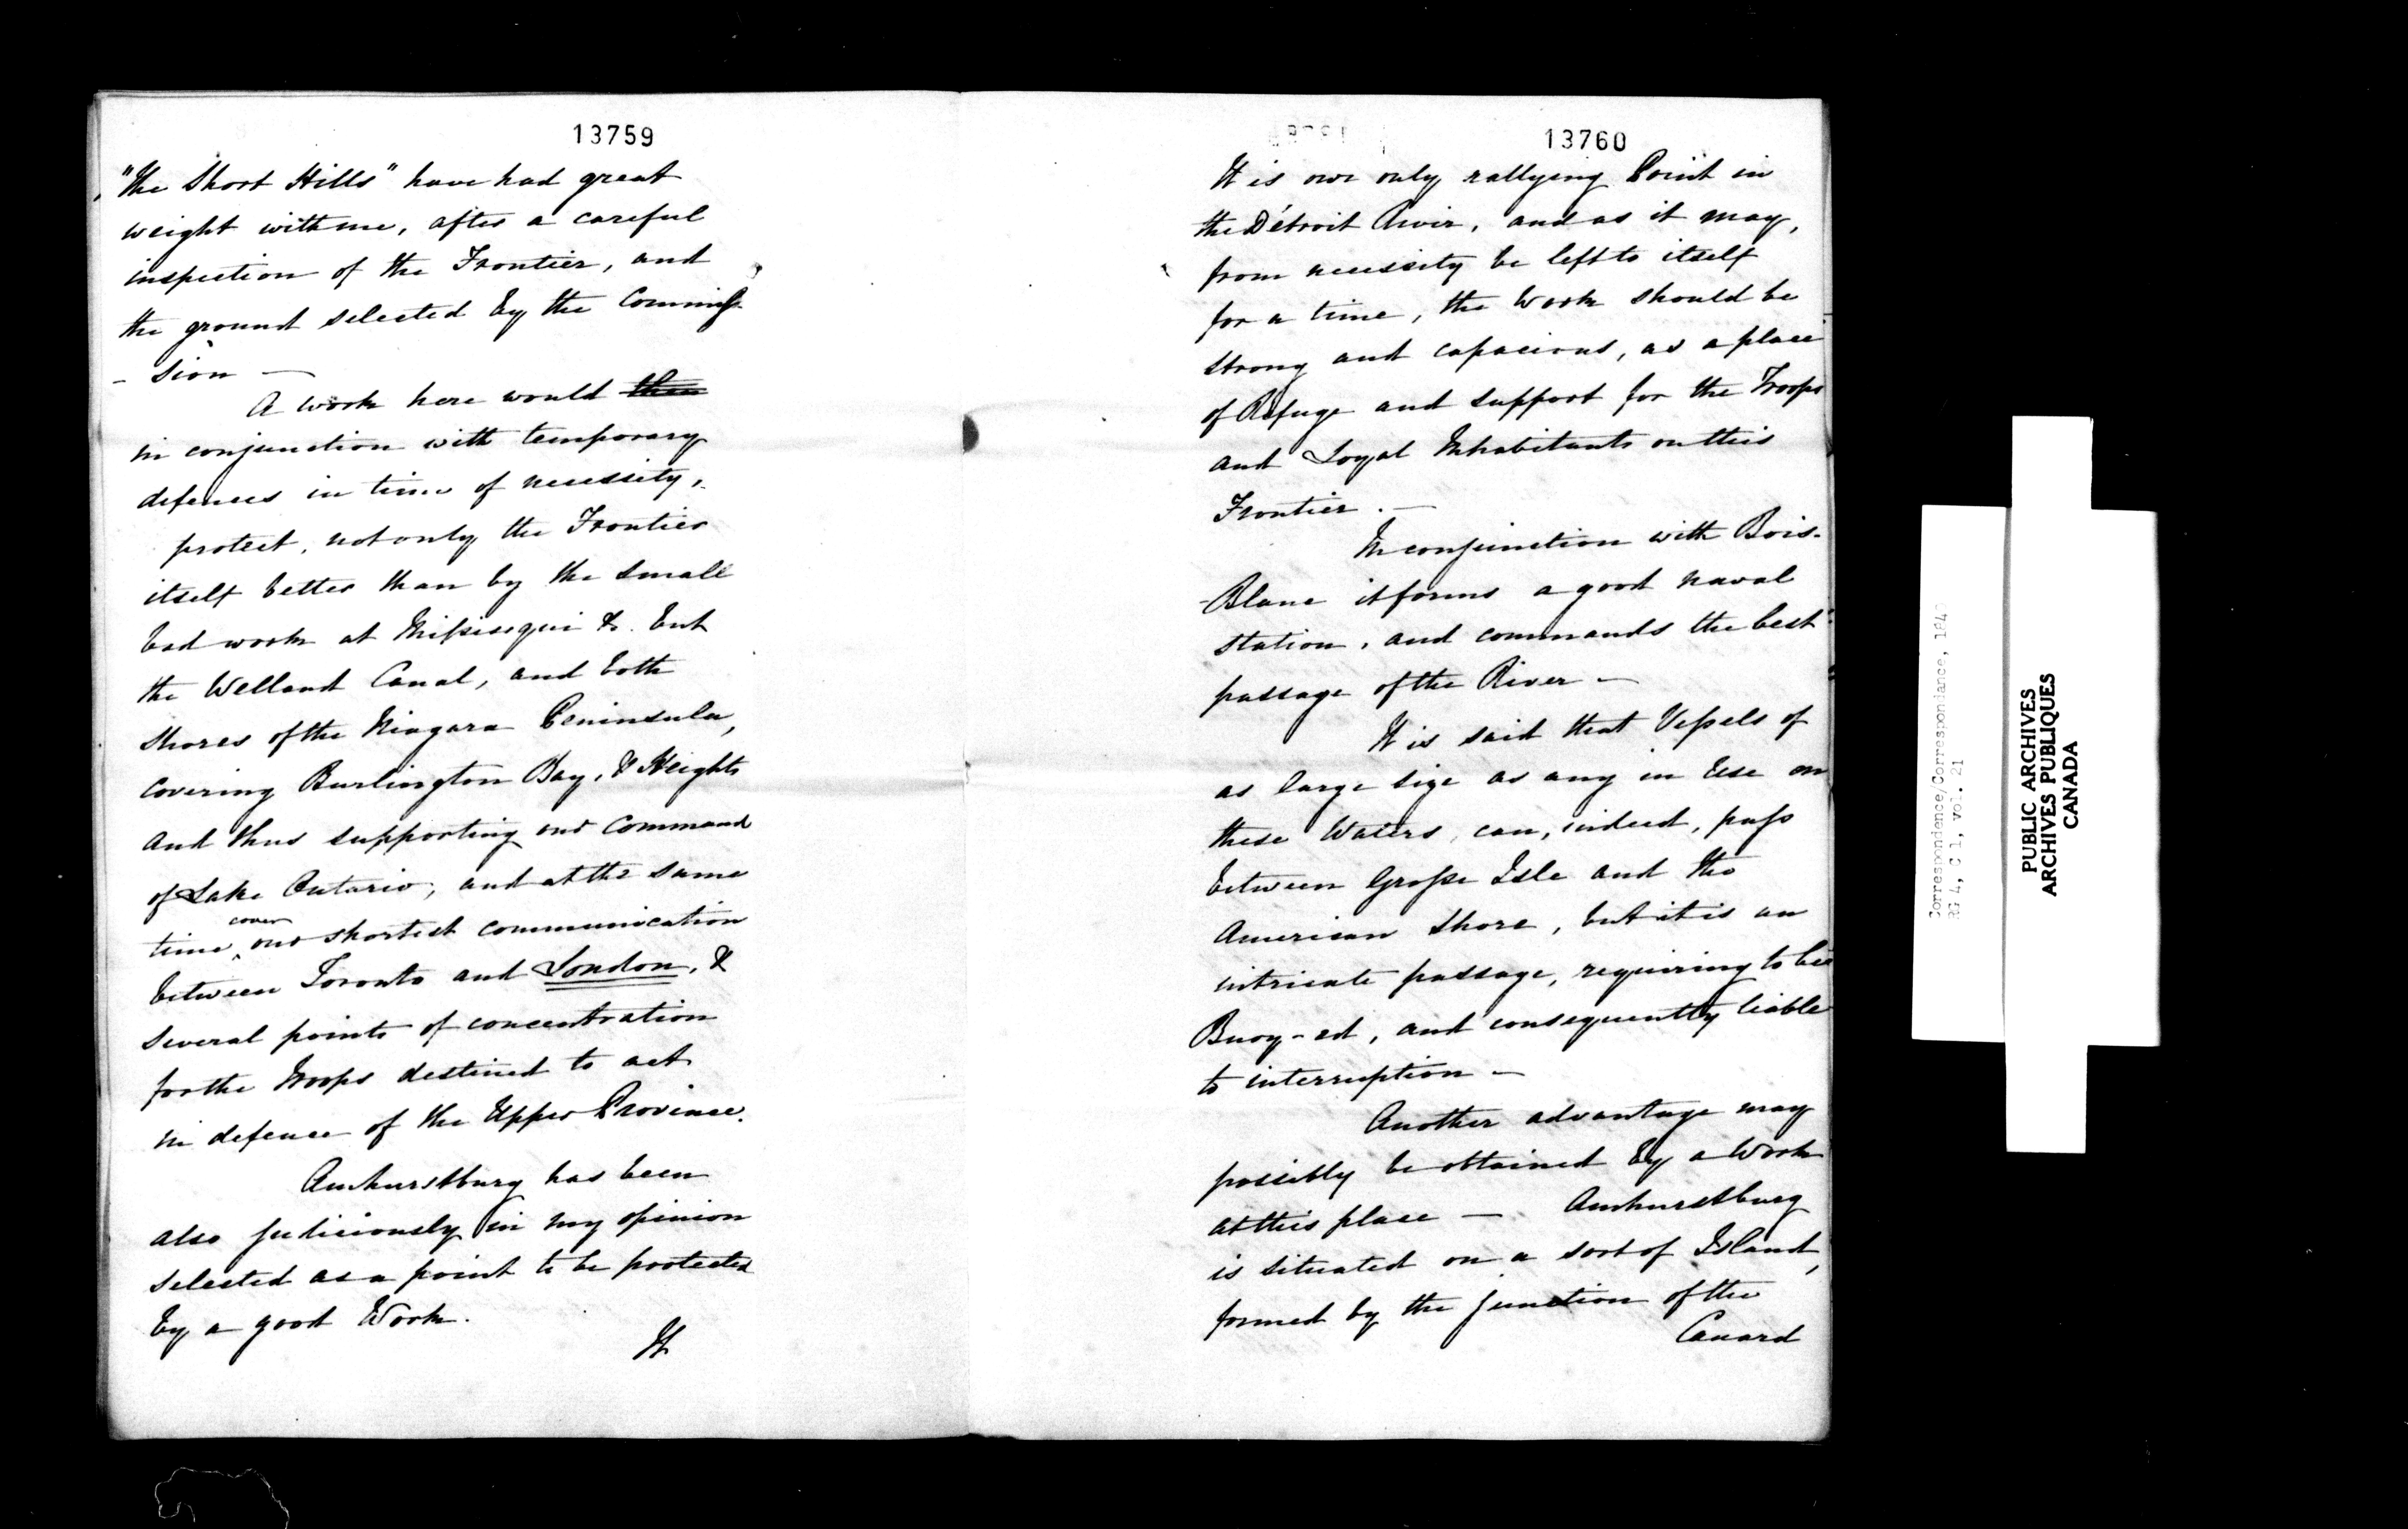 13759
"The Short Hills" have had great
weight with me, after a careful
inspection of the Frontier, and
the ground selected by the Commis-
-sion —
A work here would then
in conjunction with temporary
defences in time of necessity,
protect, not only the Frontier
itself better than by the small
bad work at Missisequi &. but
the Welland Canal, and both
shores of the Niagara Peninsula,
covering Burlington Bay, & Heights
and thus supporting our command
of Lake Ontario, and at the same
time cover our shortest communication
between Toronto and London, &
several points of concentration
for the Troops destined to act
in defence of the Upper Province.
Amhurstburg has been
also judiciously in my opinion
selected as a point to be protected
by a good Work.
It
13760
It is our only rallying Point in
the Détroit River, and as it may,
from necessity be left to itself
for a time, the Work should be
strong and capacious, as a place
of Refuge and support for the Troops
and Loyal Inhabitants on this
Frontier. —
In conjunction with Bois-
-Blanc it forms a good naval
station, and commands the best
passage of the River —
It is said that Vessels of
as large size as any in Use on
these Waters, can, indeed, pass
between Grosse Isle and the
American Shore, but it is an
intricate passage, requiring to be
Buoy-ed, and consequently liable
to interruption —
Another advantage may
possibly be obtained by a Work
at this place — Amhurstburg
is situated on a sort of Island,
formed by the junction of the
Canard
Correspondence/Correspondance, 184
RG 4, C 1, vol. 21
PUBLIC ARCHIVES
ARCHIVES PUBLIQUES
CANADA